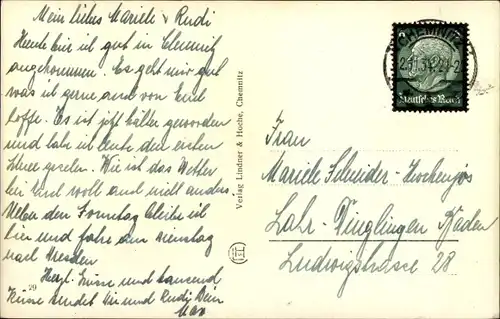 Mein liebes Mariele & Rudi
Heute bin ich gut in Chemnitz
angekommen. Es geht mir gut
was ich gerne auch von Euch
hoffe. Es ist jetzt kälter geworden
und habe ich heute den ersten
Schnee gesehen. Wie ist das Wetter
bei Euch wohl auch nicht anders.
Ueber den Sonntag bleibe ich
hier und fahre am Dienstag
nach Dresden
Herzl. Grüsse und tausend
Küsse sendet Dir und Rudi Dein
Max
29
Verlag Lindner & Hoche, Chemnitz
CHEMNITZ
Deutsches Reich
Frau
Mariele Schneider-
Lahr-Dinglingen Baden
Ludwigstrasse 28